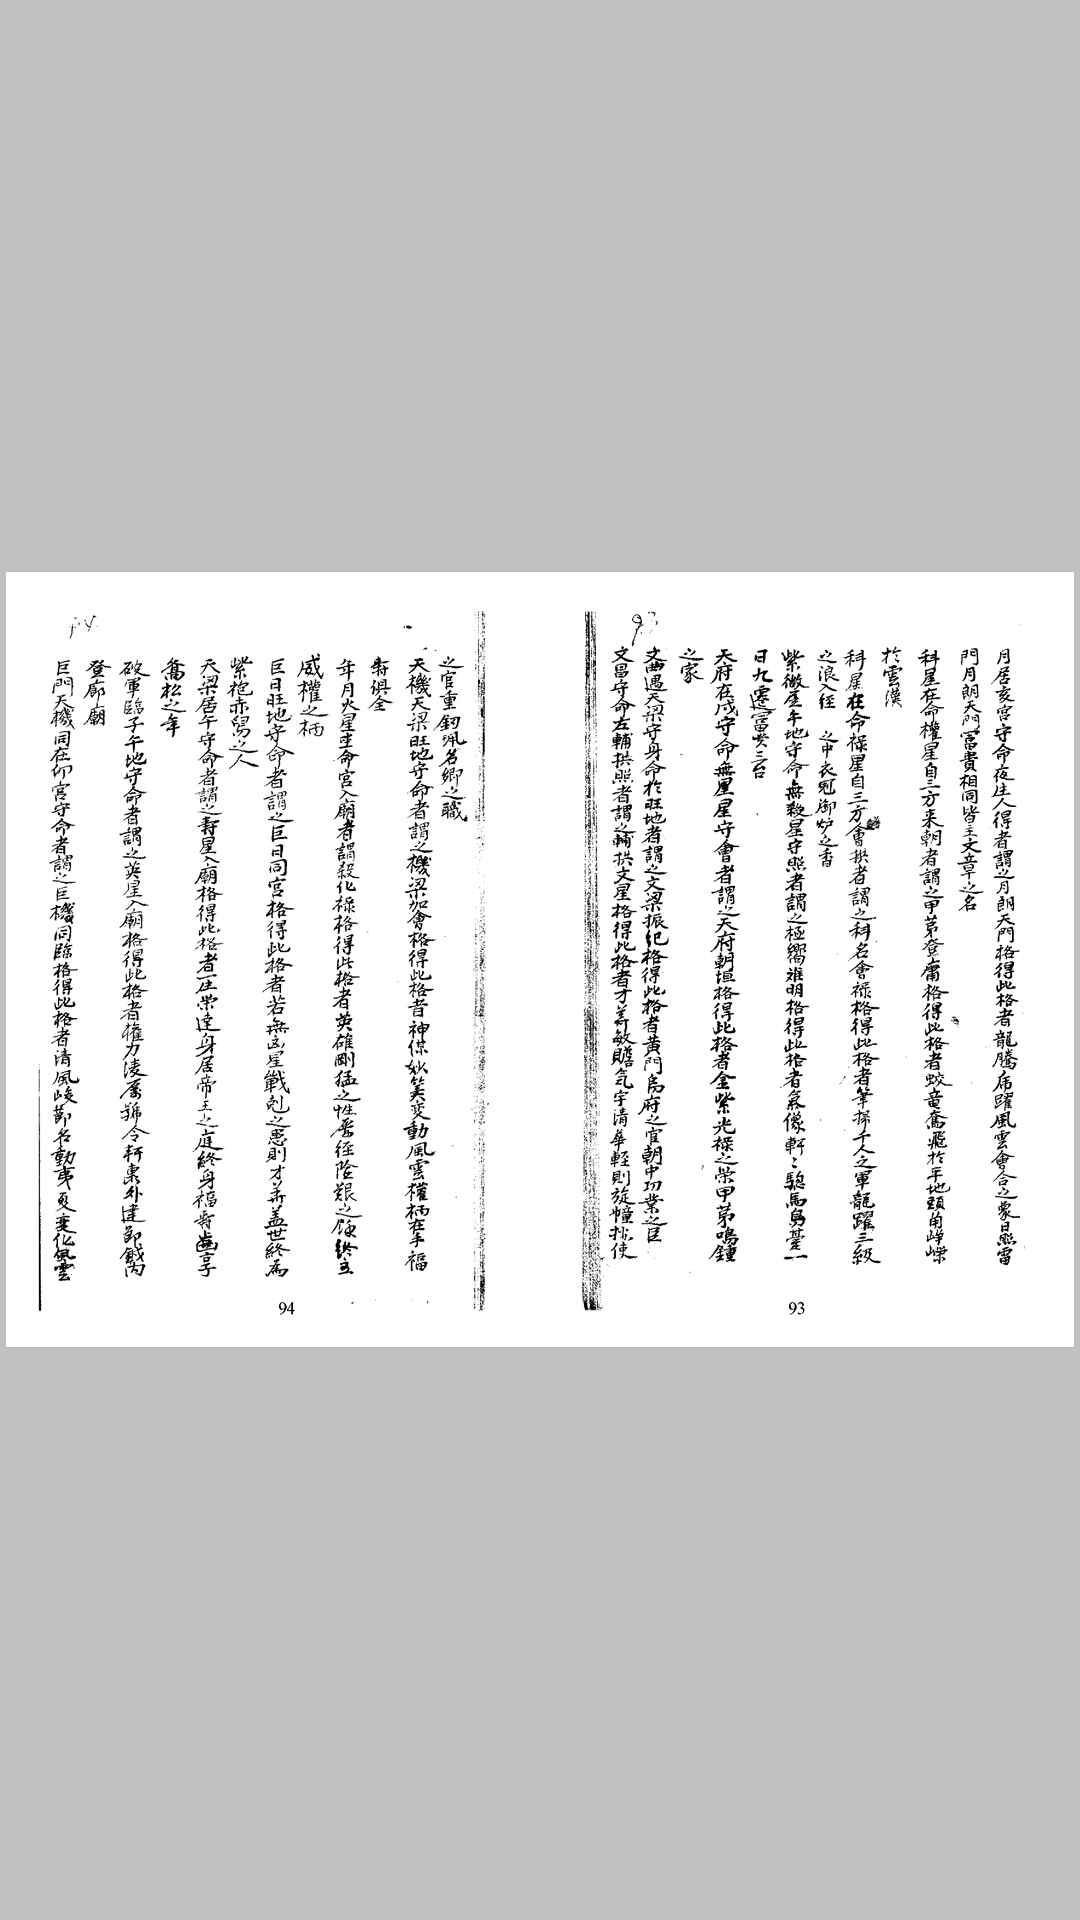 93
月居亥宮守命夜生人得者謂之月朗天門格得此格者龍騰虎躍風雲會合之象日照雷
門月朗天門富貴相同皆主文章之名
科星在命權星自三方来朝者謂之甲第登庸格得此格者蛟竜奮飛於平地頭角崢嶸
於雲漢
科星在命祿星自三方會拱者謂之科名會祿格得此格者筆掃千人之軍龍躍三級
之浪入徑 之中衣冠御炉之香
紫微居午地守命無殺星守照者謂之極嚮离明格得此格者氣像軒〻驄馬烏臺一
日九遷富貴三台
天府在戌守命無星守會者謂之天府朝垣格得此格者金紫光祿之榮甲第鳴鐘
之家
文曲遇天梁守身命於旺地者謂之文梁振紀格得此格者黄門烏府之官朝中功業之臣
文昌守命左輔拱照者謂之輔拱文星格得此格者才華敏贍気宇清華輕則旋幢 使
93
之官重 珮名卿之職
天機天梁旺地守命者謂之機梁加會格得此格者神保妙筭变動風雲權柄在手福
寿俱全
年月火星坐命宮入廟者謂殺化祿格得此格者英雄剛猛之性歷徑險艱之 終主
威權之柄
巨日旺地守命者謂之巨日同宮格得此格者若無凶星戰剋之患則才華盖世終為
紫袍赤舄之人
天梁居午守命者謂之寿星入廟格得此格者一生榮達身居帝王之庭終身福寿 享
喬松之年
破軍臨子午地守命者謂之英星入廟格得此格者權力凌 號令軒 外建節鉞内
登廊廟
巨門天機同在卯宮守命者謂之巨機同臨格得此格者清風峻節名動夷夏变化風雲
94